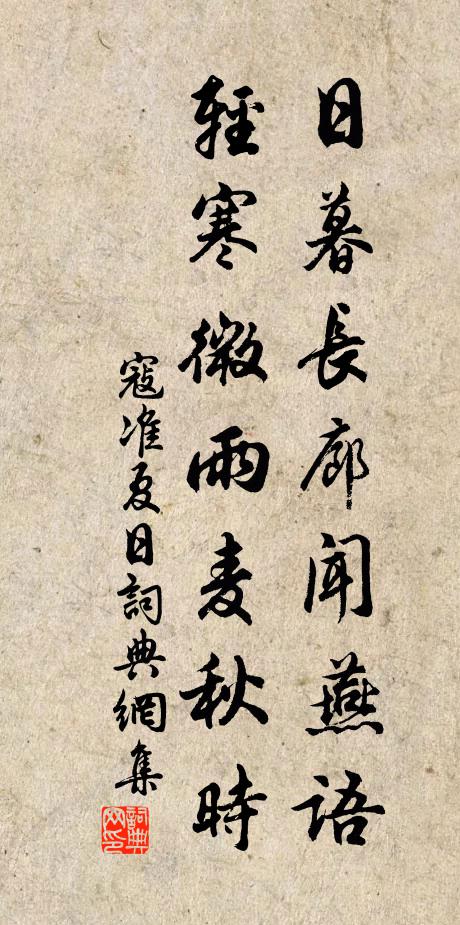 日暮長廊闻燕語
輕寒微雨麦秋時
寇准夏日詞典網集
詞典网印